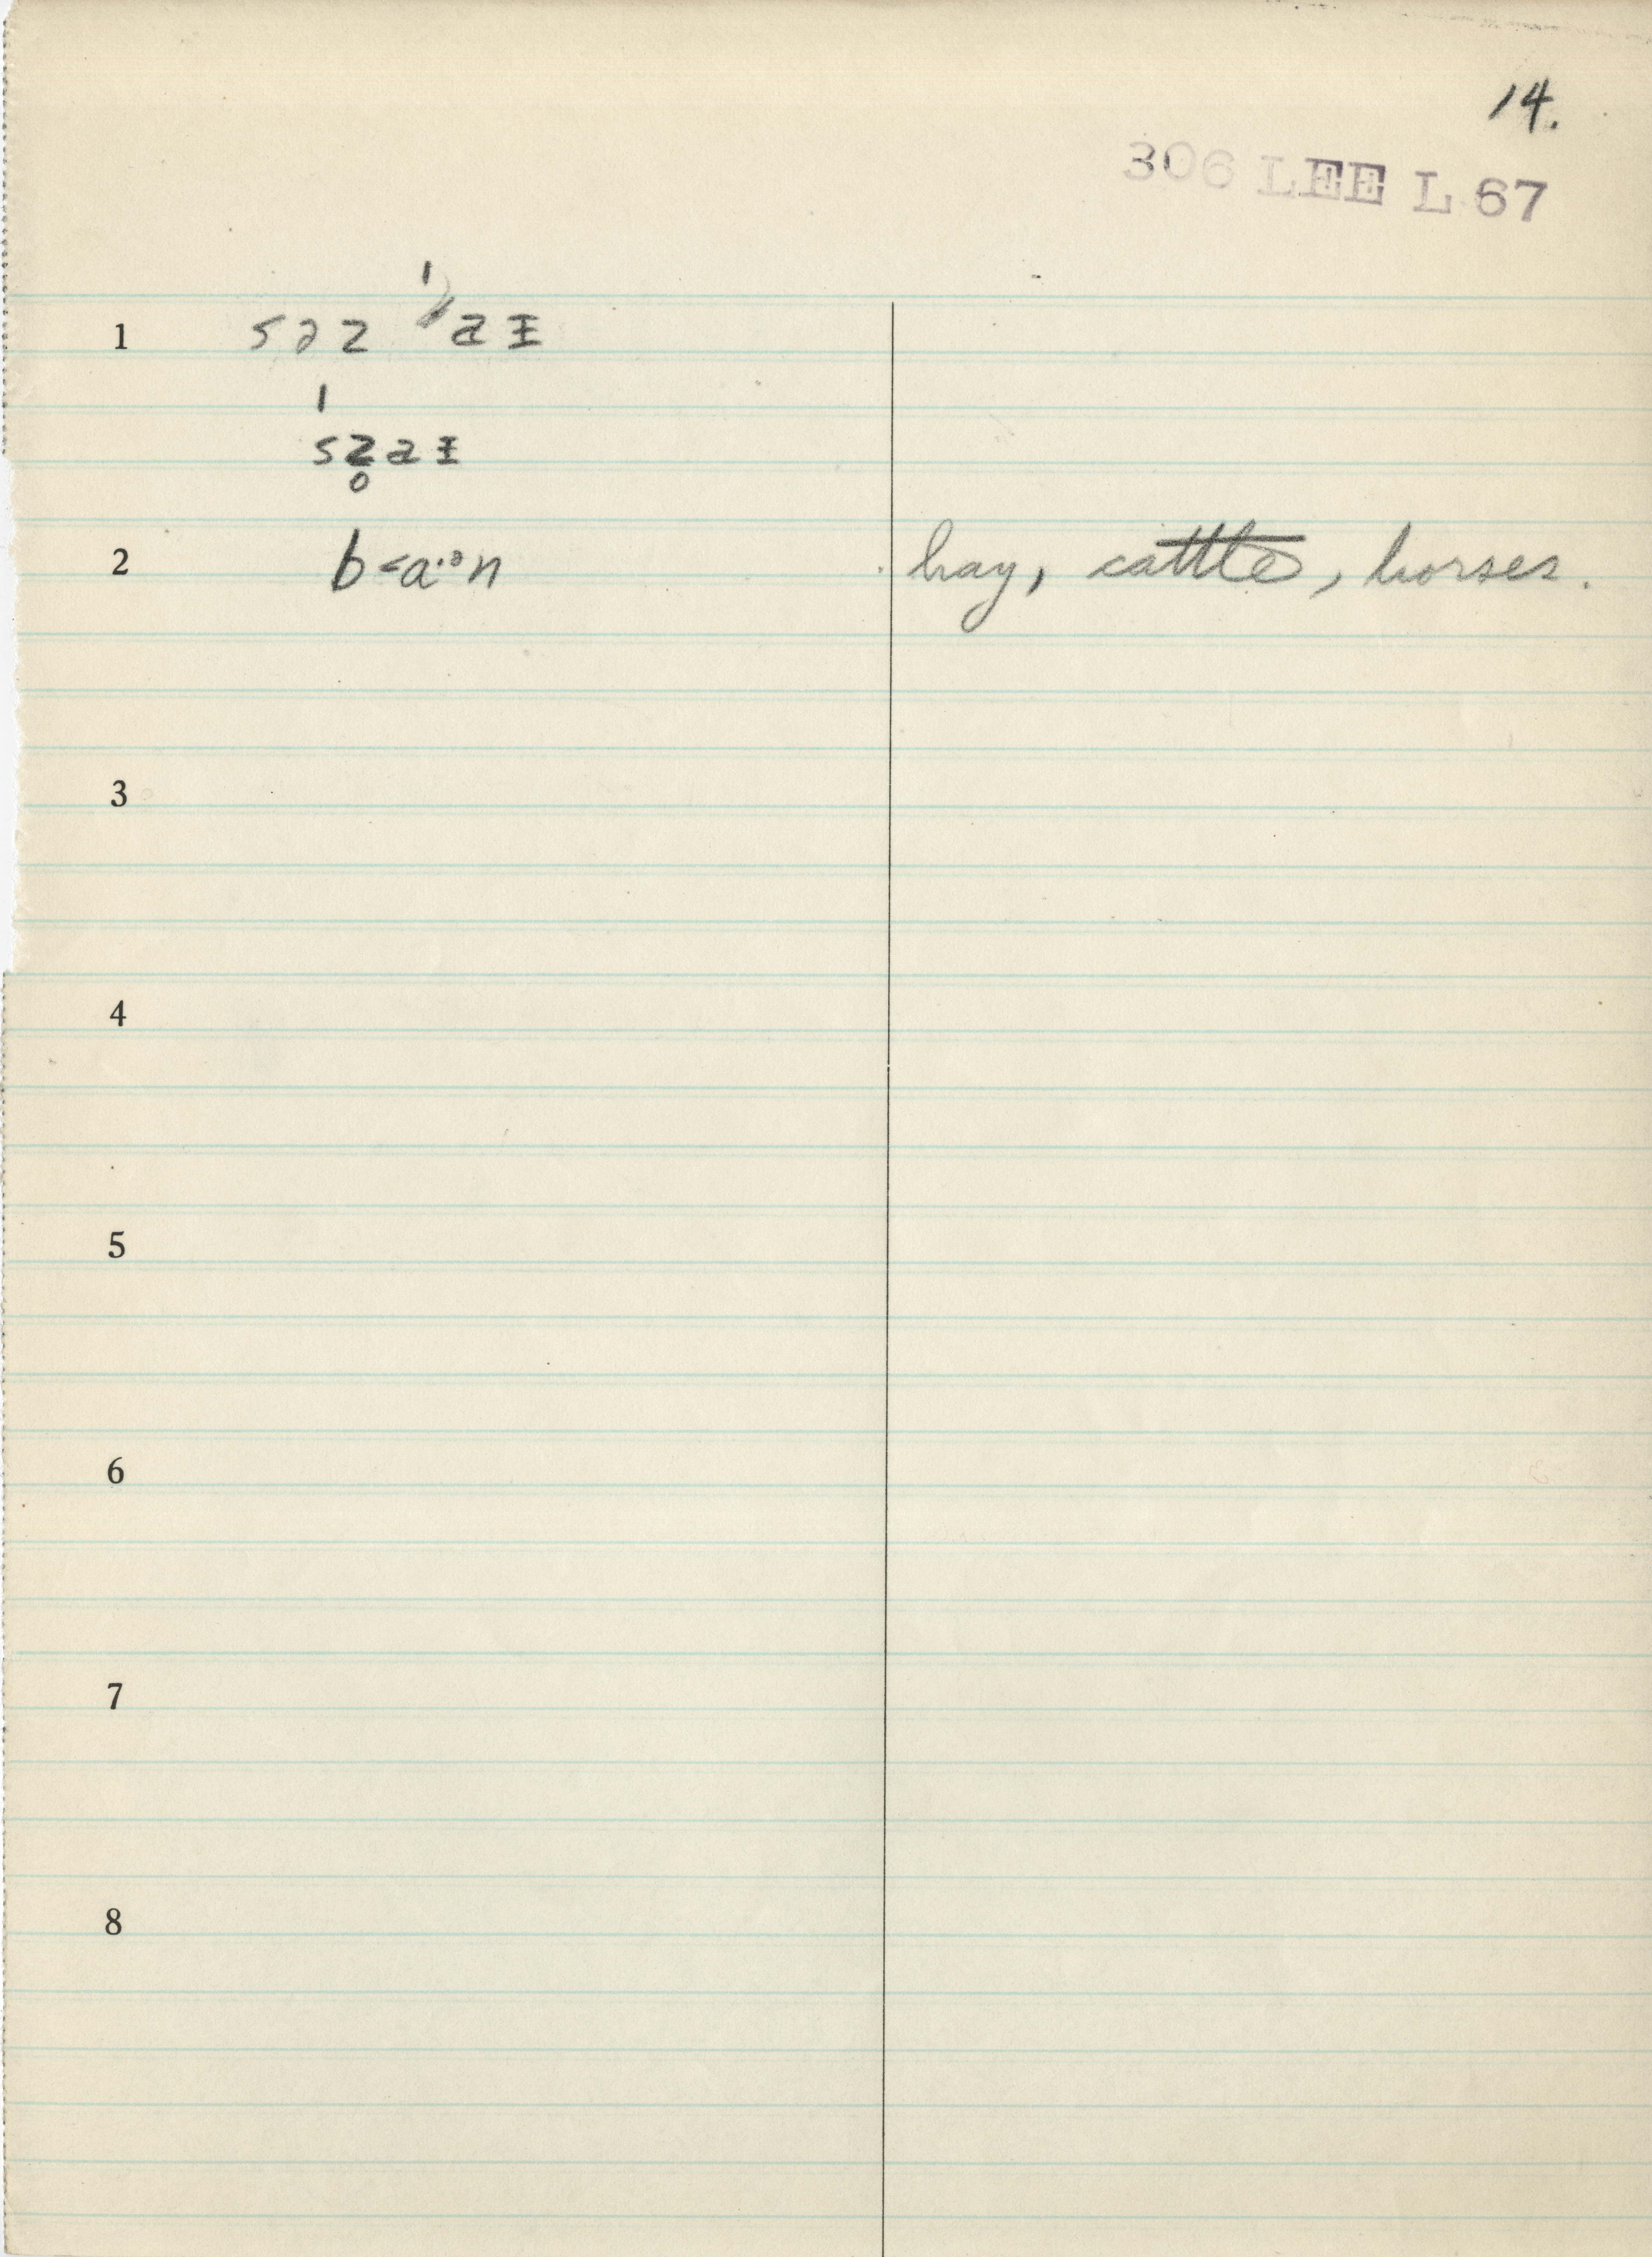 14.
306 LEE L 67
1 səz ˈaᵻ
ˈsz̥aᵻ
2 b<a·ᵊn hay, cattle, horses.
3
4
5
6
7
8